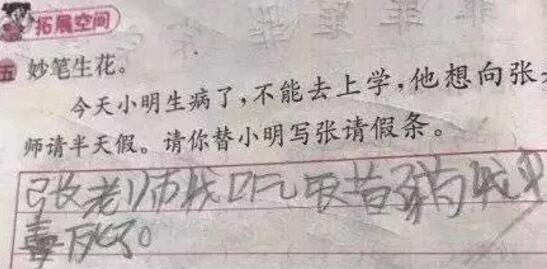 拓展空间
五 妙笔生花。
今天小明生病了，不能去上学，他想向张
师请半天假。请你替小明写张请假条。
张老师我吃
毒死了。